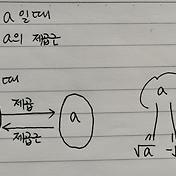 a 일 때
a의 제곱근
때
제곱
a
제곱근
a
√a -